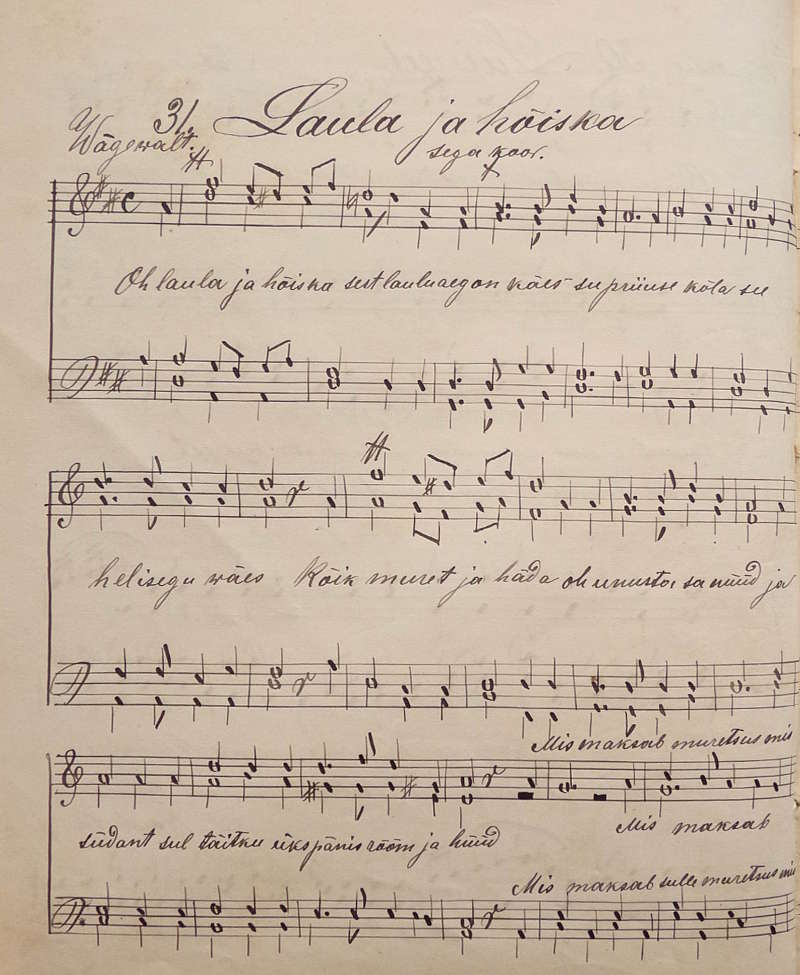 31. Laula ja hõiska
Wägewalt.
sega koor.
Oh laula ja hõiska sest lauluaeg on käes su priiuse kõla see
helisegu wäes Kõik muret ja häda oh unusta sa nüüd ja
Mis maksab muretsus mis
südant sul täitku üks pänis rõõm ja hüüd
Mis maksab
Mis maksab sulle muretsus mis